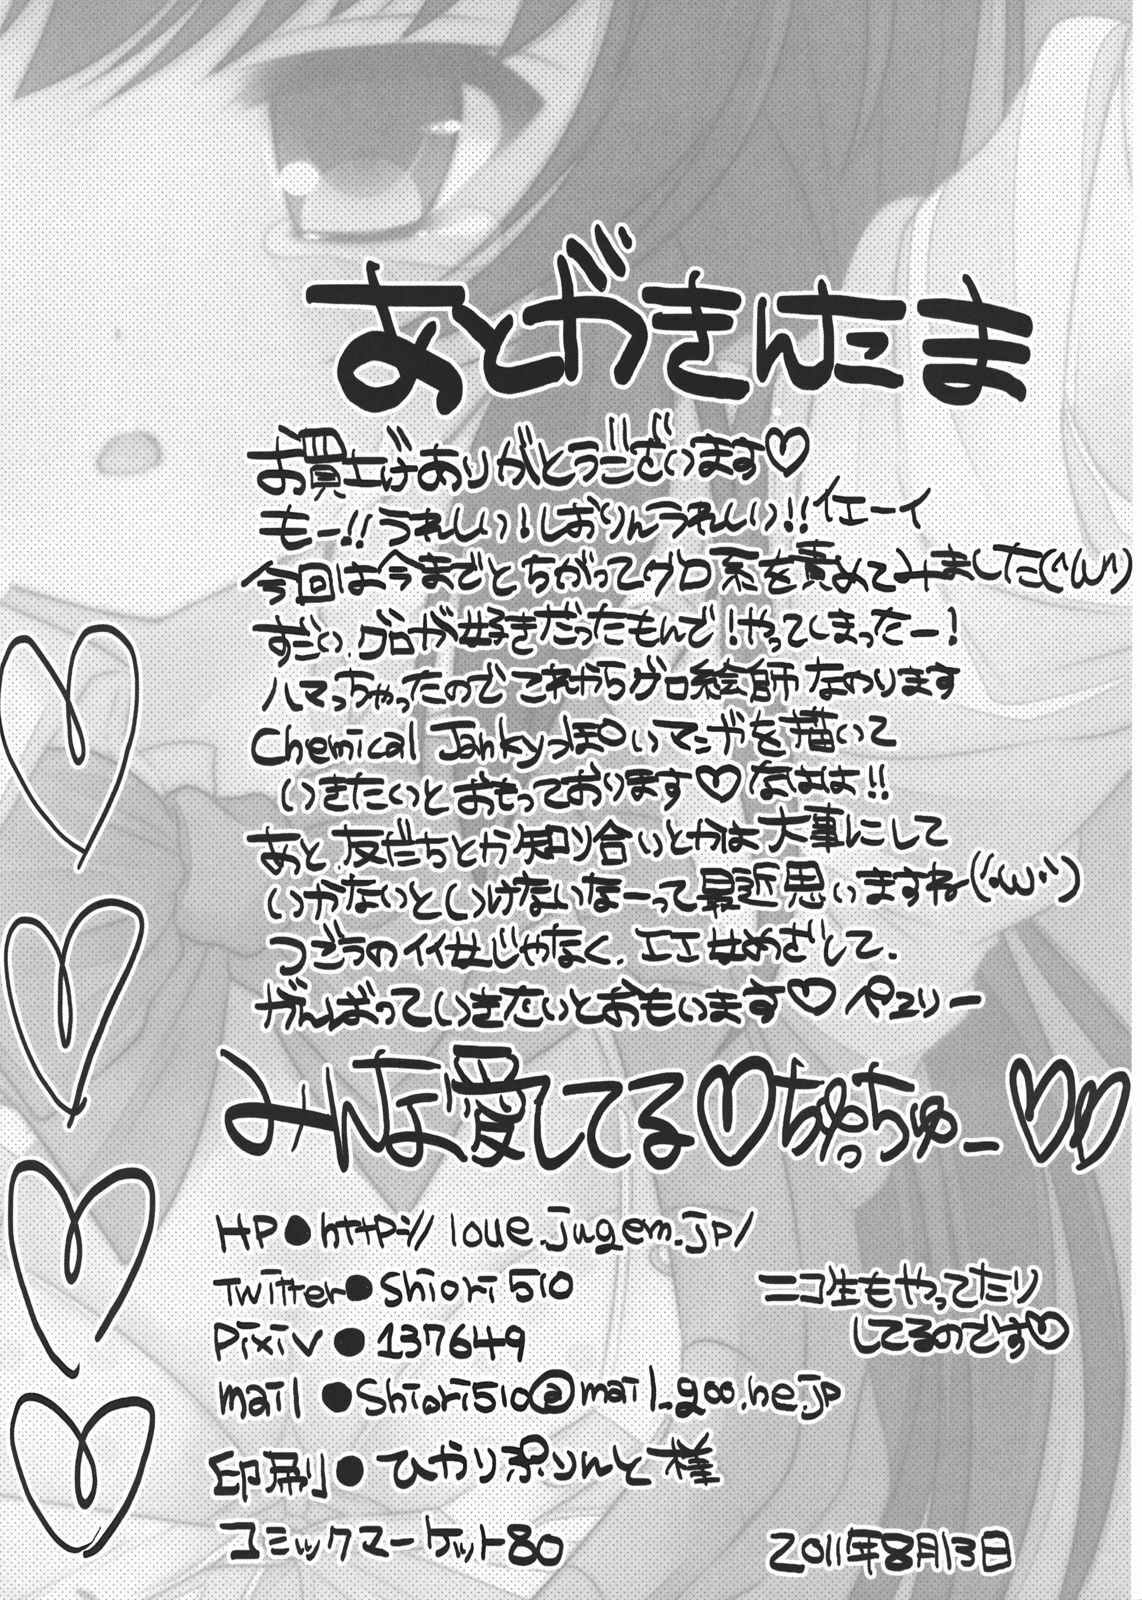 あとがきんたま
お買上げありがとうございます♡
もー!!うれしい!しおりんうれしい!!イエーイ
今回は今までとちがってグロ系を責めてみました(´・ω・`)
すごい、グロが好きだったもんで!やってしまったー!
ハマっちゃったのでこれからグロ絵師なのります
Chemical Jankyっぽいマンガを描いて
いきたいとおもっております♡なはは!!
あと、友だちとか知り合いとかは大事にして
いかないといけないなーって最近思いますね(´・ω・`)
つごうのイイ女じゃなく、エエ女めざして、
がんばっていきたいとおもいます♡ペュリー
みんな愛してる♡ちゅっちゅー♡♡
HP●http://loue.jugem.jp/
Twitter●Shiori510
ニコ生もやってたり
Pixiv●137649
してるのです♡
mail●Shiori510@mail.goo.ne.jp
印刷●ひかりぷりんと様
コミックマーケット80
2011年8月13日